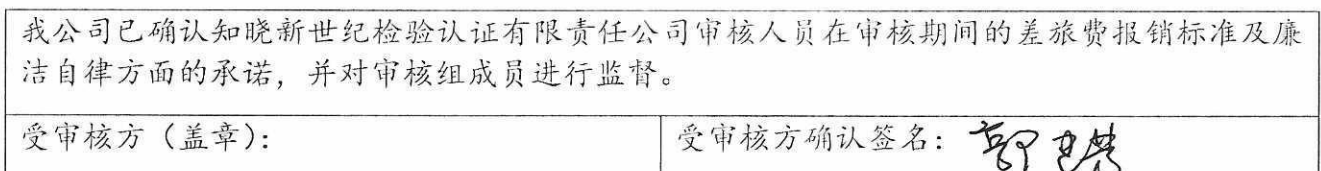 我公司已确认知晓新世纪检验认证有限责任公司审核人员在审核期间的差旅费报销标准及廉
洁自律方面的承诺，并对审核组成员进行监督。
受审核方（盖章）：
受审核方确认签名：